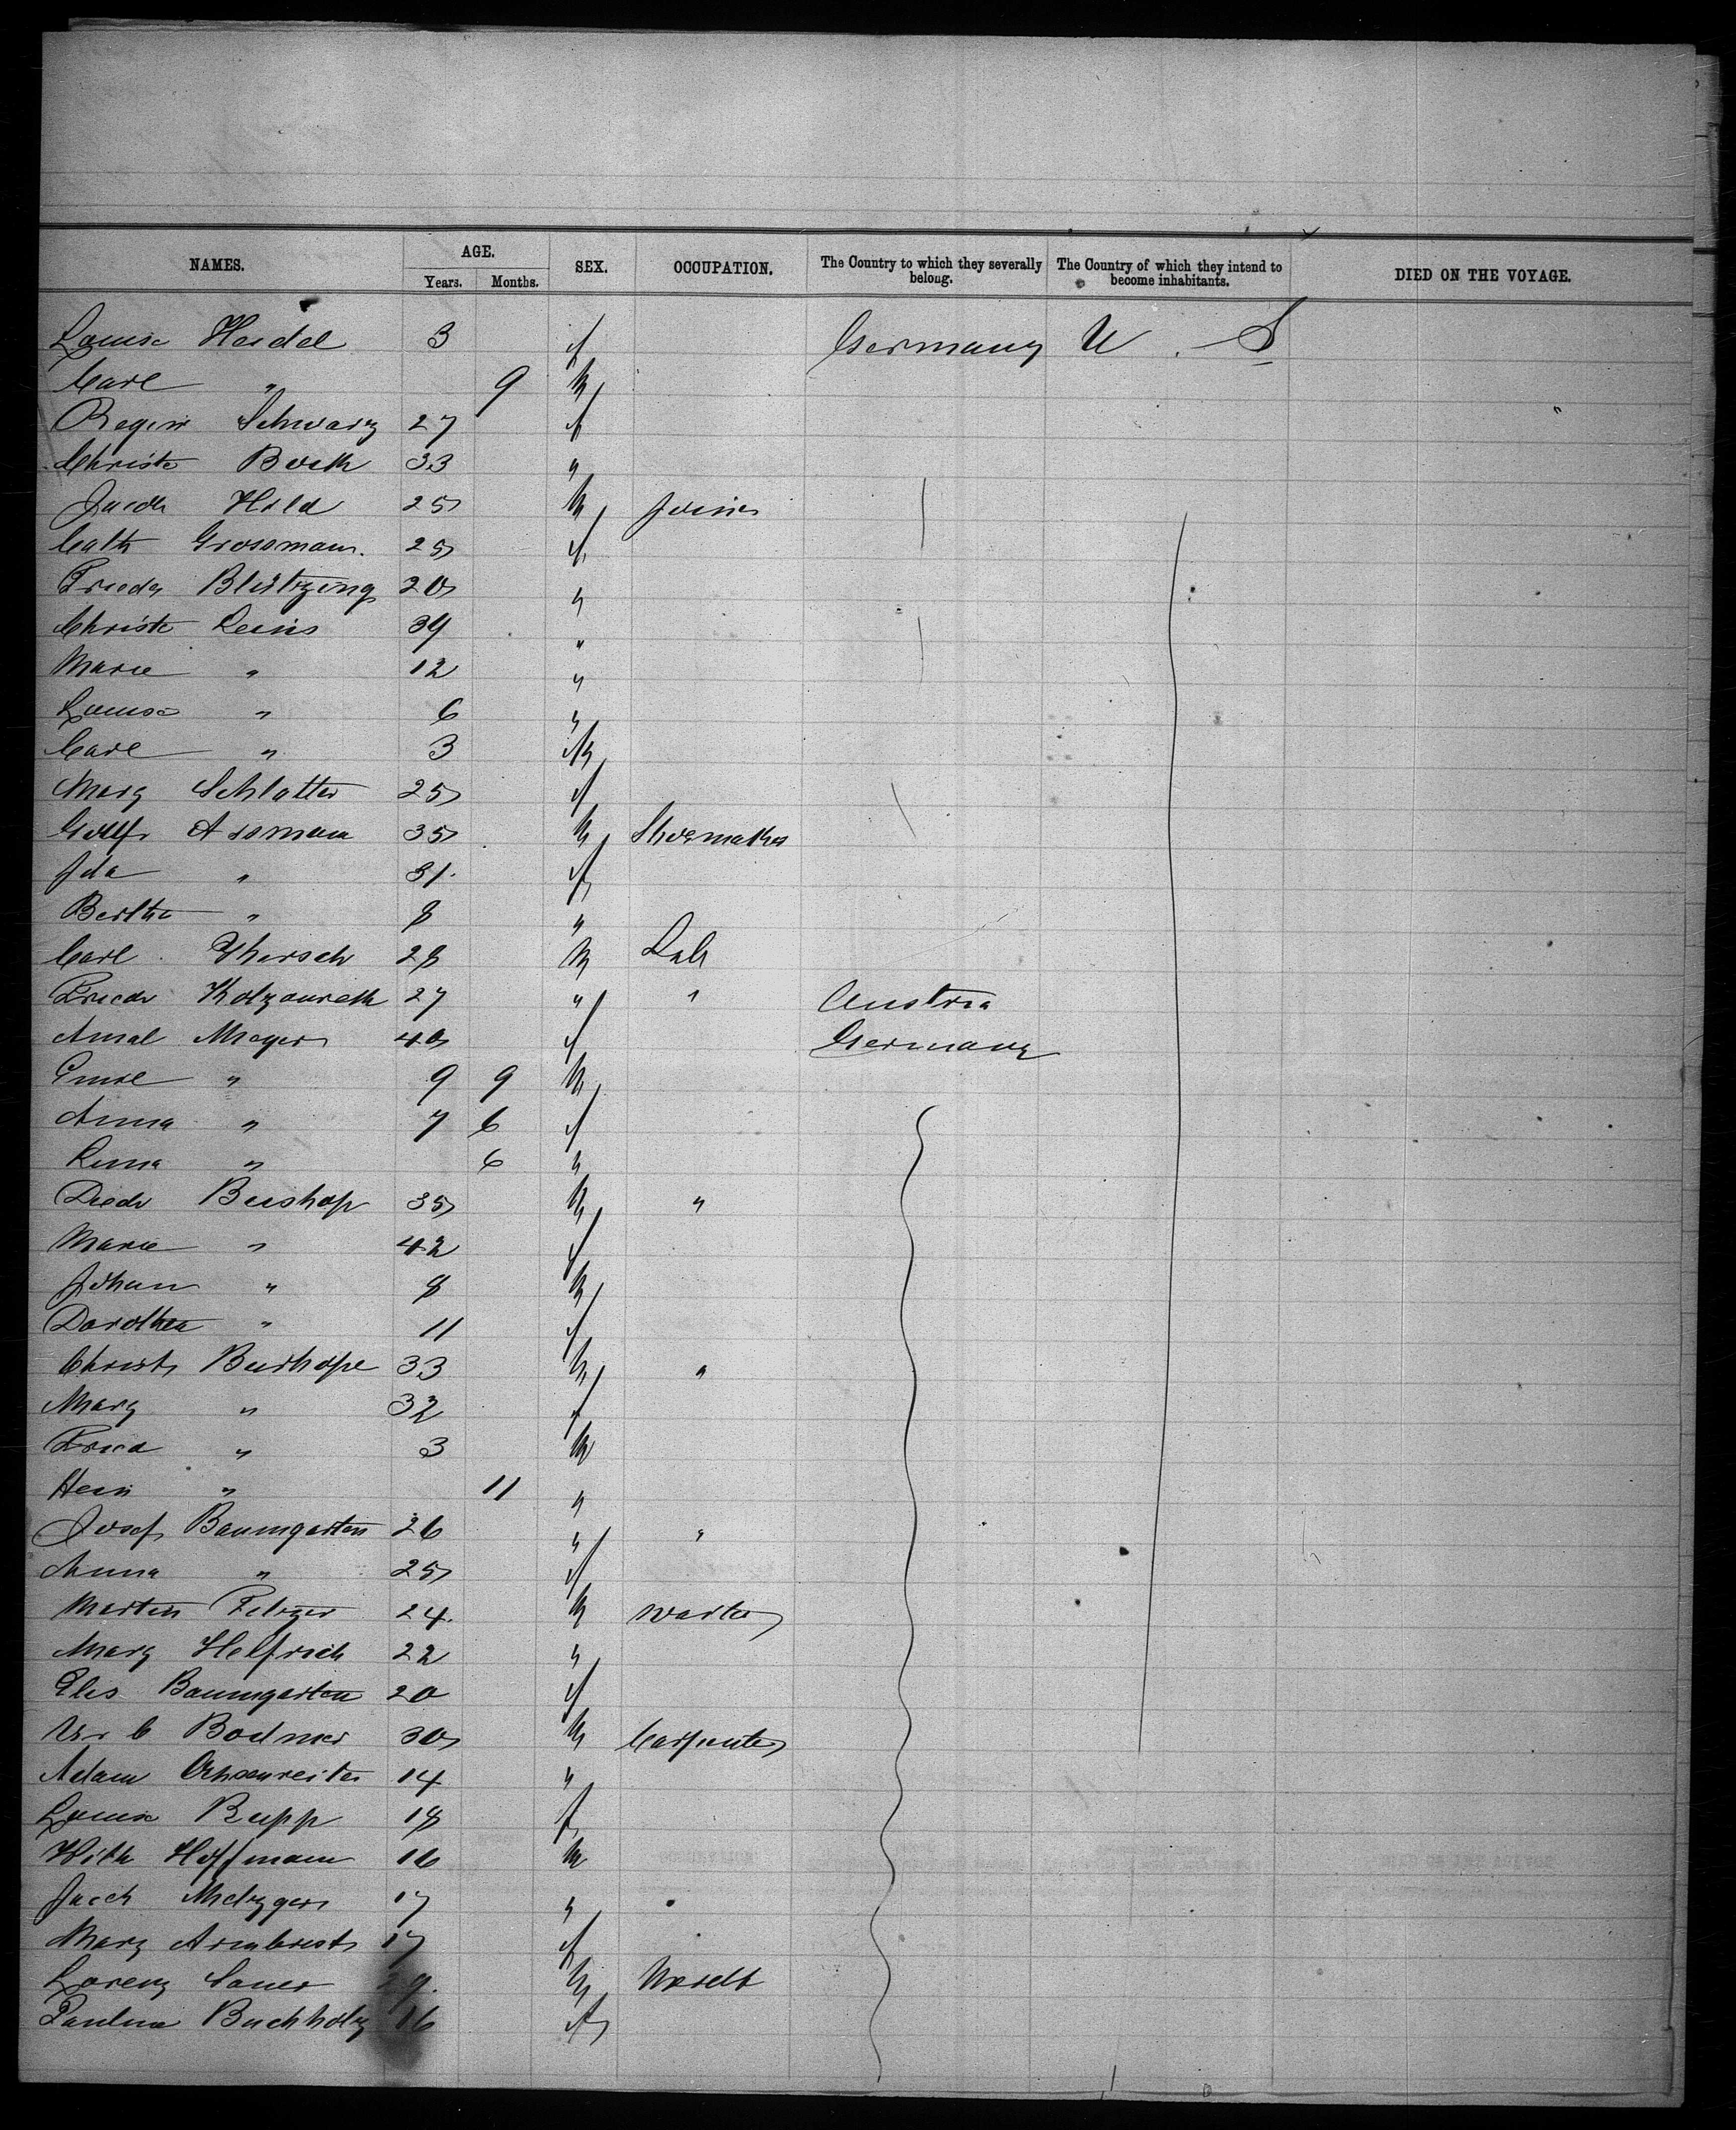 NAMES. AGE. SEX. OCCUPATION. The Country to which they severally belong. The Country of which they intend to become inhabitants. DIED ON THE VOYAGE.
Years. Months.
Louise Heidel 3 f Germany U. S
Carl " 9 M
Regin Schwarz 27 f
Christe Bock 33 "
Jacob Hild 25 M Joiner
Cath Grossmann. 25 f
Frieda 20 "
Christe Reins 39 "
Marie " 12 "
Louise " 6 "
Carl " 3 M
Marg Schlatter 25 f
Gottf. Assmann 35 M Shoemaker
Ida " 31. f
Bertha " 8 "
Carl 28 M Lab
Friedr 27 " " Austria
Amal Meyer 40 f Germany
Emil " 9 9 M
Anna " 7 6 f
Lina " 6 "
Diedr Buishop 35 M "
Marie " 42 f
Johan " 8 M
Dorothea " 11 f
Christ Burhope 33 M "
Marg " 32 f
Fried " 3 M
Hein " 11 "
Josef Baumgarten 26 " "
Anna " 25 f
Martin 24. M
Marg Helfrich 22 "
Elis Baumgarten 20 f
Bodmer 30 M Carpenter
Adam Ochsenreiter 14 "
Louise Rupp 18 f
Wilh Hoffmann 16 M
Jacob Metzger 17 "
Marg Armbrust 17 f
Lorenz Sauer 29. M
Pauline Buchholz 16 f